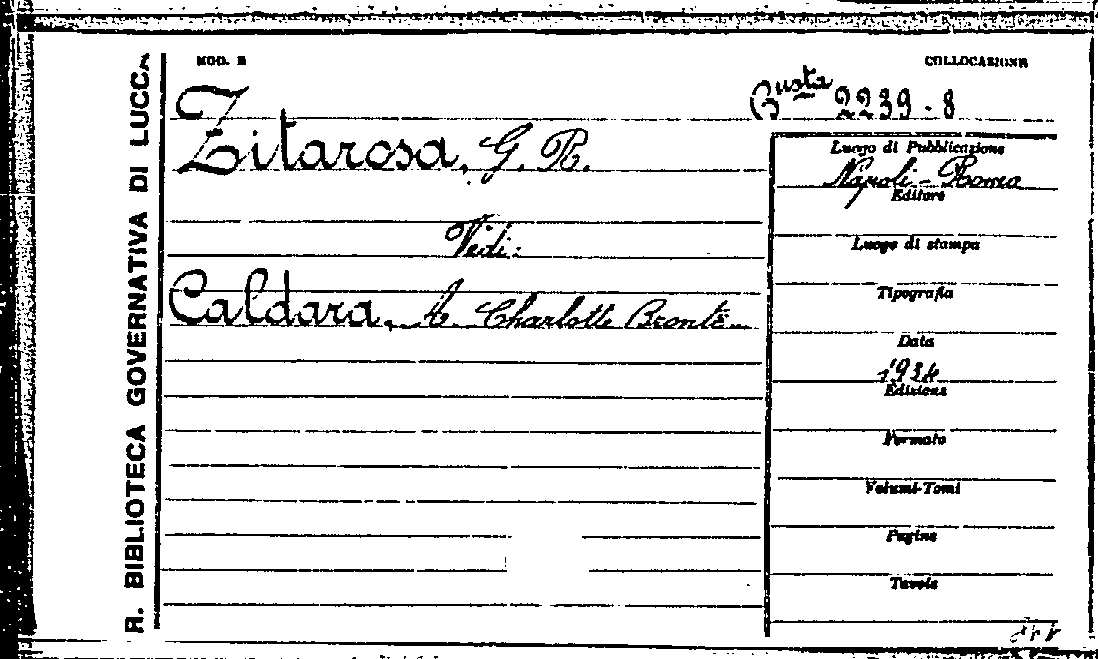 R. BIBLIOTECA GOVERNATIVA DI LUCCA
MOD. B
COLLOCAZIONE
Busta 2239 - 8
Zitarosa, G. R.
Vedi:
Caldara, A. Charlotte Brontë
Luogo di Pubblicazione
Napoli - Roma
Editore
Luogo di stampa
Tipografia
Data
1934
Edizione
Formato
Volumi-Tomi
Pagine
Tavole